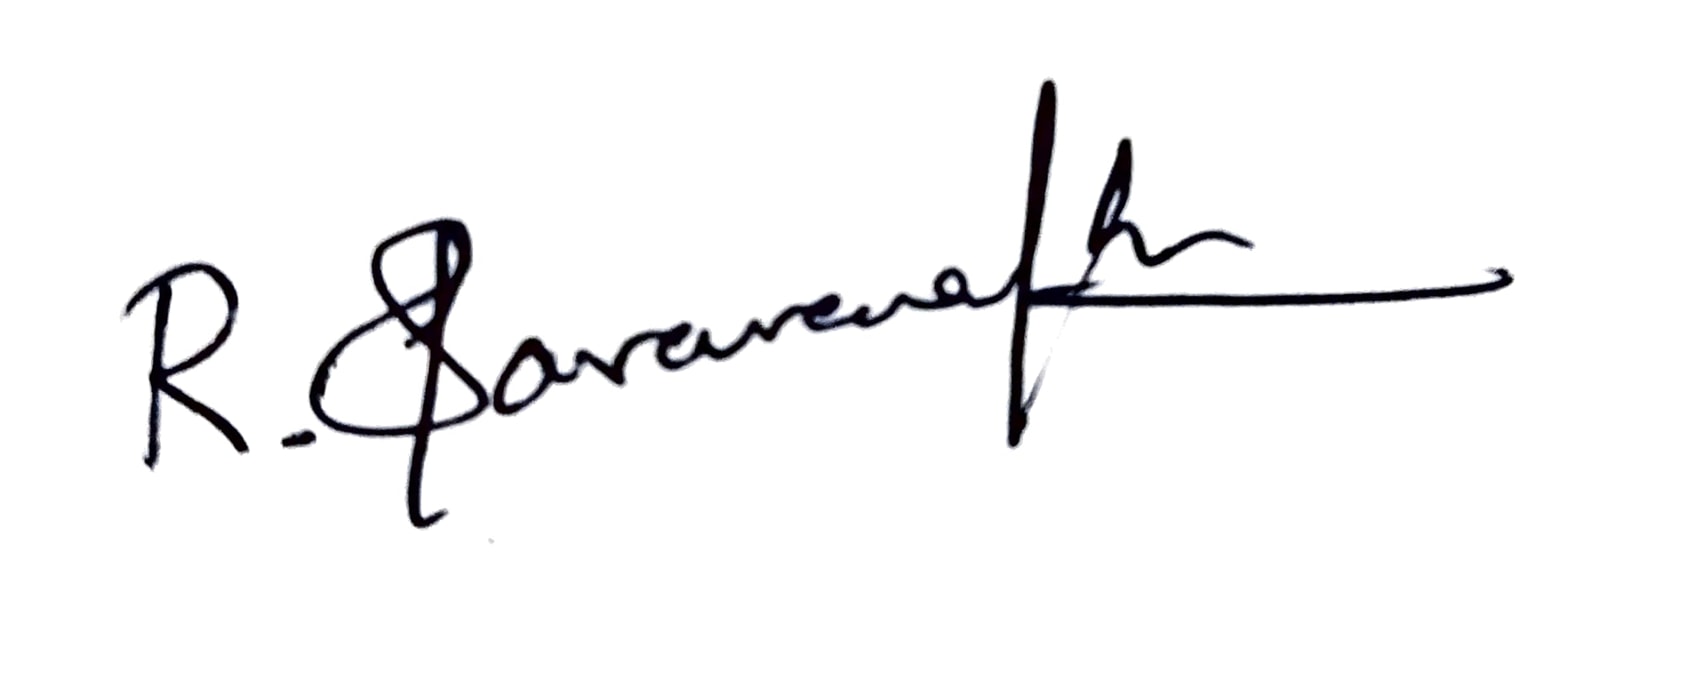 R. Saravana